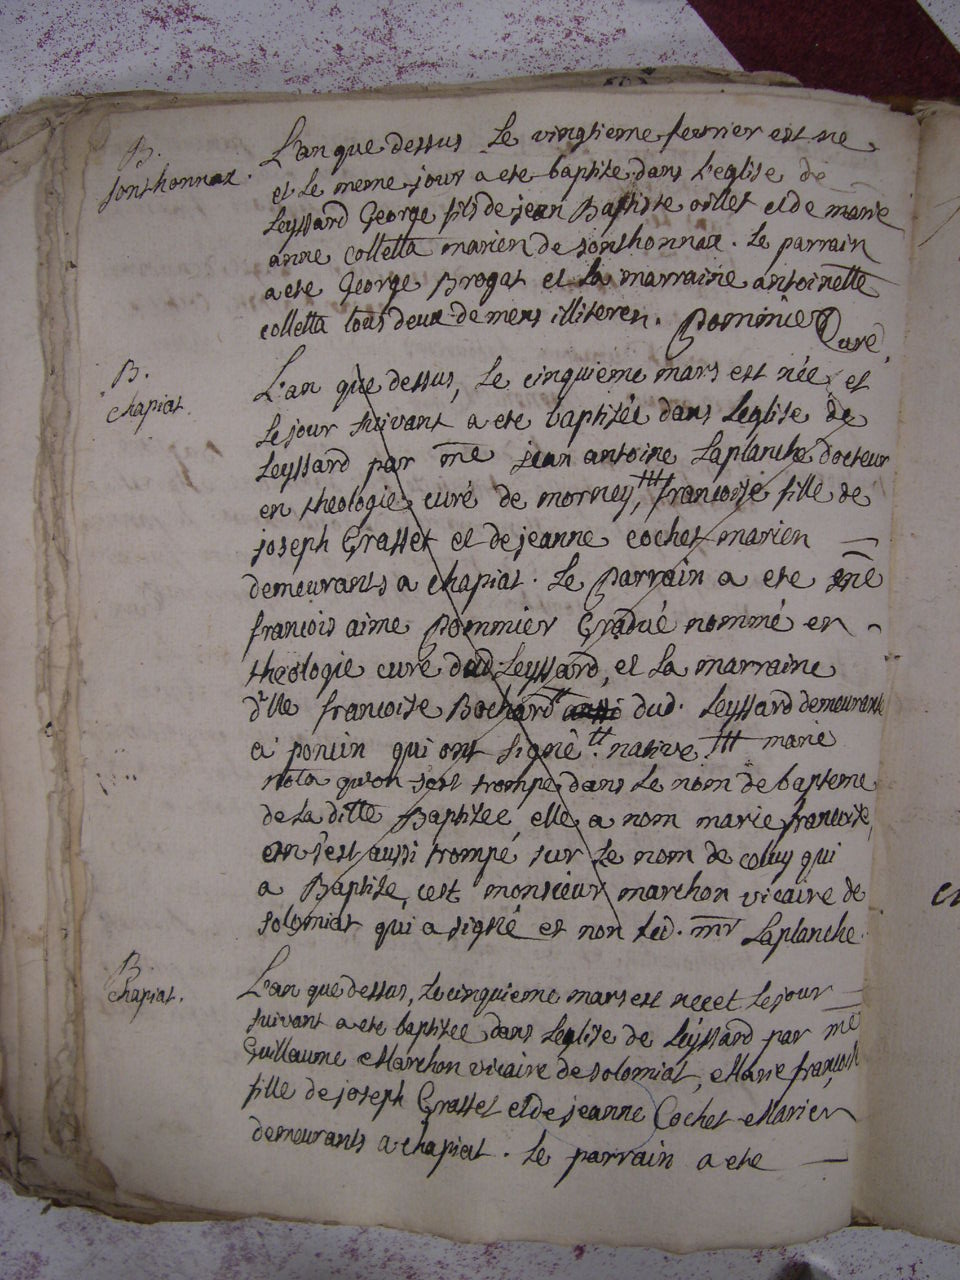 B.
Sonthonnax.
L'an que dessus Le vingtieme fevrier est ne
et Le meme jour a ete baptise dans L'eglise de
Leyssard George fils de jean Baptiste oillet et de marie
anne colletta marien de sonthonnax. Le parrain
a ete George Brogat et la marraine antoinette
colletta tous deux de mens illiteren. Pommier Curé
B.
chapiat.
L'an que dessus, Le cinquieme mars est née et
Le jour suivant a ete baptisée dans Leglise de
Leyssard par me jean antoine Laplanche docteur
en theologie curé de morney, ttt francoise fille de
joseph Grasset et de jeanne cochet marien
demeurants a chapiat. Le Parrain a ete me
francois aime Pommier Gradué nommé en
theologie curé dud. Leyssard, et La marraine
dlle francoise Bochard tt dud. Leyssard demeurante
a poncin qui ont signé tt. native ttt marie
nota qu'on s'est trompé dans Le nom de bapteme
de La ditte Baptisée elle a nom marie francoise,
on s'est aussi trompé sur Le nom de celuy qui
a Baptisé, cest monsieur marchon vicaire de
solomiat qui a signé et non led. mr Laplanche.
B.
chapiat.
L'an que dessus, Le cinquieme mars est nee et Le jour
suivant a ete baptisee dans Leglise de Leyssard par me
Guillaume Marchon vicaire de solomiat, Marie françoise
fille de joseph Grasset et de jeanne Cochet Marien
demeurants a chapiat. Le parrain a ete